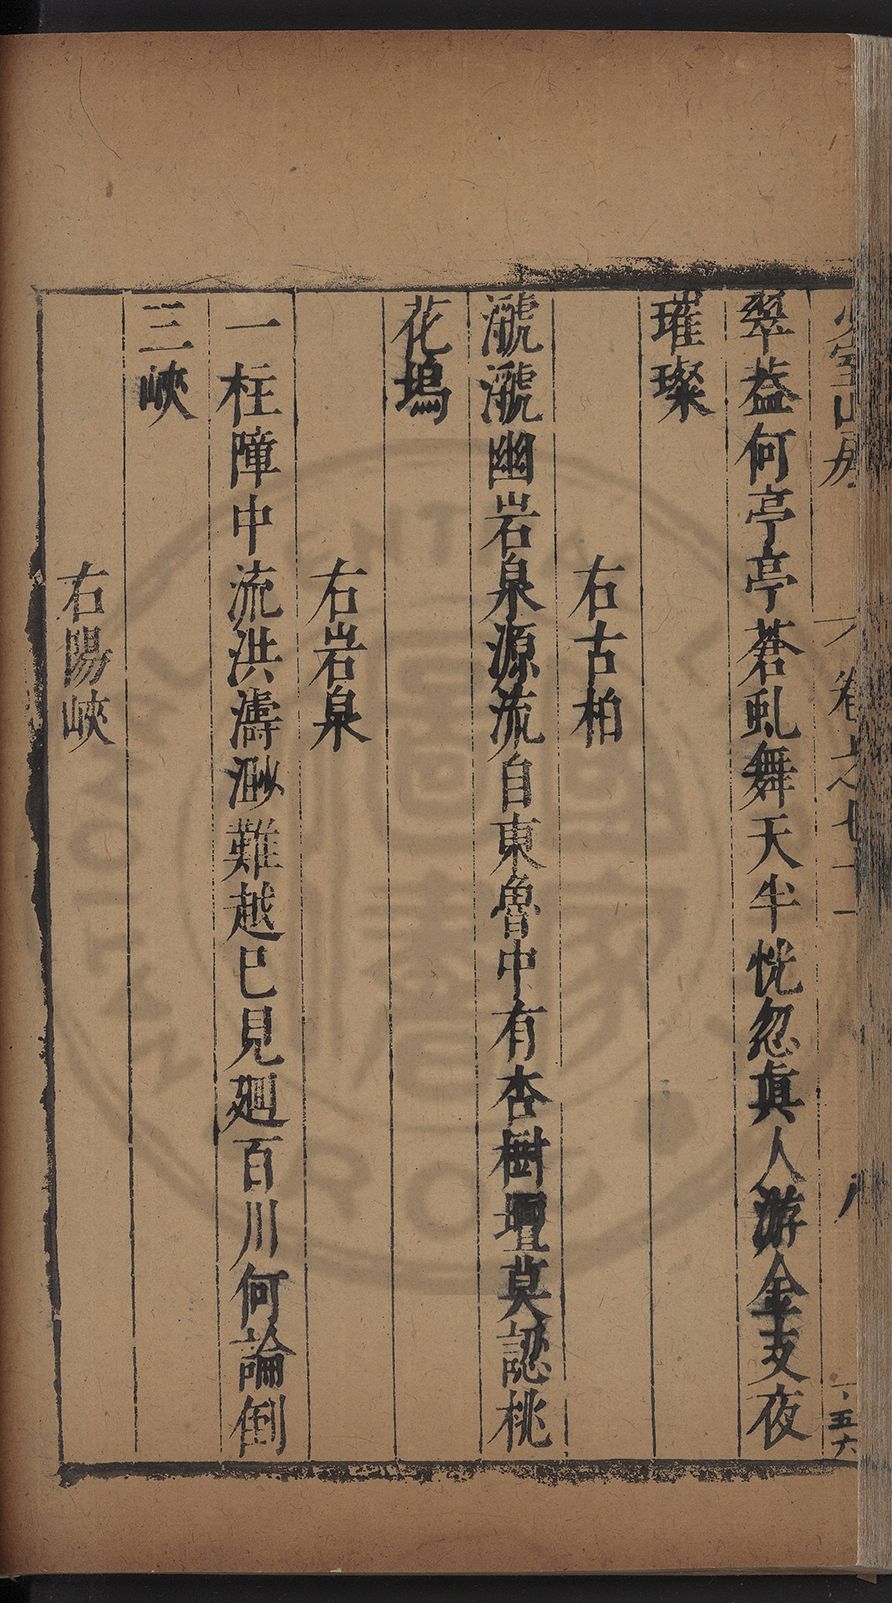 少室山房
卷之七十
八
一、五六
翠葢何亭亭蒼虬舞天半恍忽真人游金支夜
璀璨
右古柏
漉漉幽岩泉源流自東魯中有杏樹壇莫認桃
花塢
右岩泉
一柱障中流洪濤渺難越巳見廻百川何論倒
三峽
右陽峽